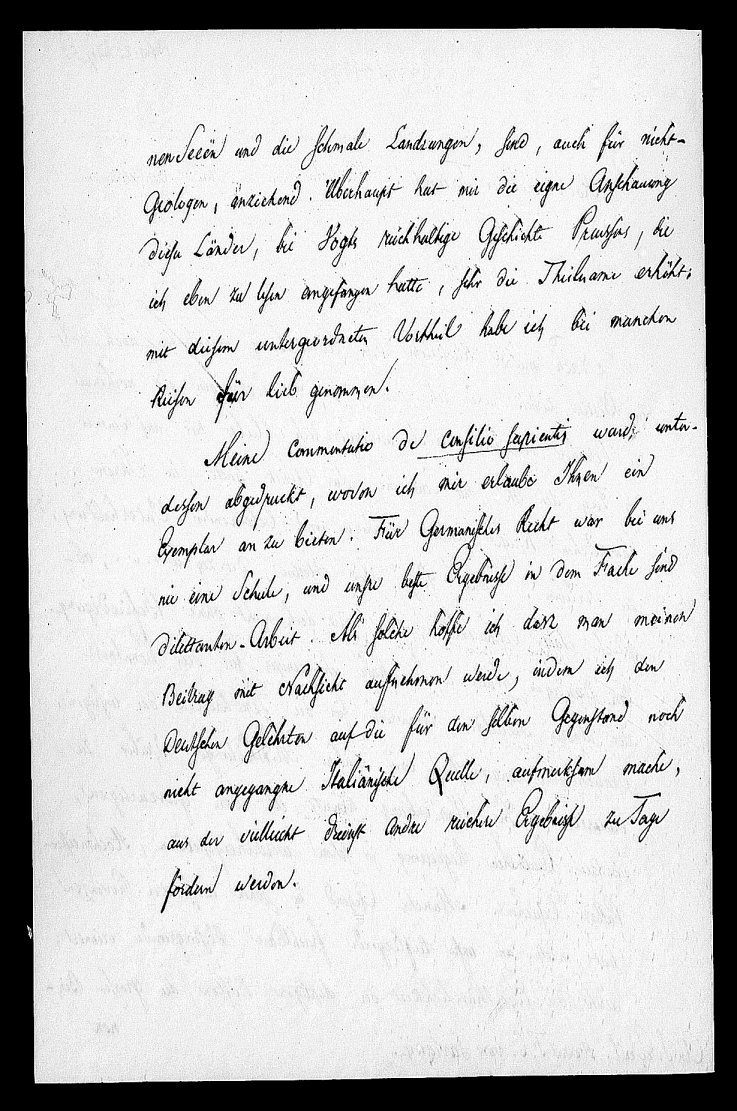 nen Seeën und die schmale Landzungen, sind, auch für nicht-
Geologen, anziehend. Überhaupt hat mir die eigne Anschauung
dieser Länder, bei Vogts reichhaltige Geschichte Preussens, die
ich eben zu lesen angefangen hatte, sehr die Theilname erhöht;
mit diesem untergeordneten Vortheil habe ich bei manchen
Reisen für lieb genommen.
Meine Commentatio de consilio sapientis ward unter-
dessen abgedruckt, wovon ich mir erlaube Ihnen ein
Exemplar an zu bieten. Für Germanisches Recht war bei uns
nie eine Schule, und unsre beste Ergebnisse in dem Fache sind
dilettanten-Arbeit. Als solche hoffe ich dasz man meinen
Beitrag mit Nachsicht aufnehmen werde, indem ich den
Deutschen Gelehrten auf die für den selben Gegenstand noch
nicht angegangne Italiänische Quelle, aufmerksam mache,
aus der vielleicht dereinst andre reichere Ergebnisse zu Tage
fördern werden.